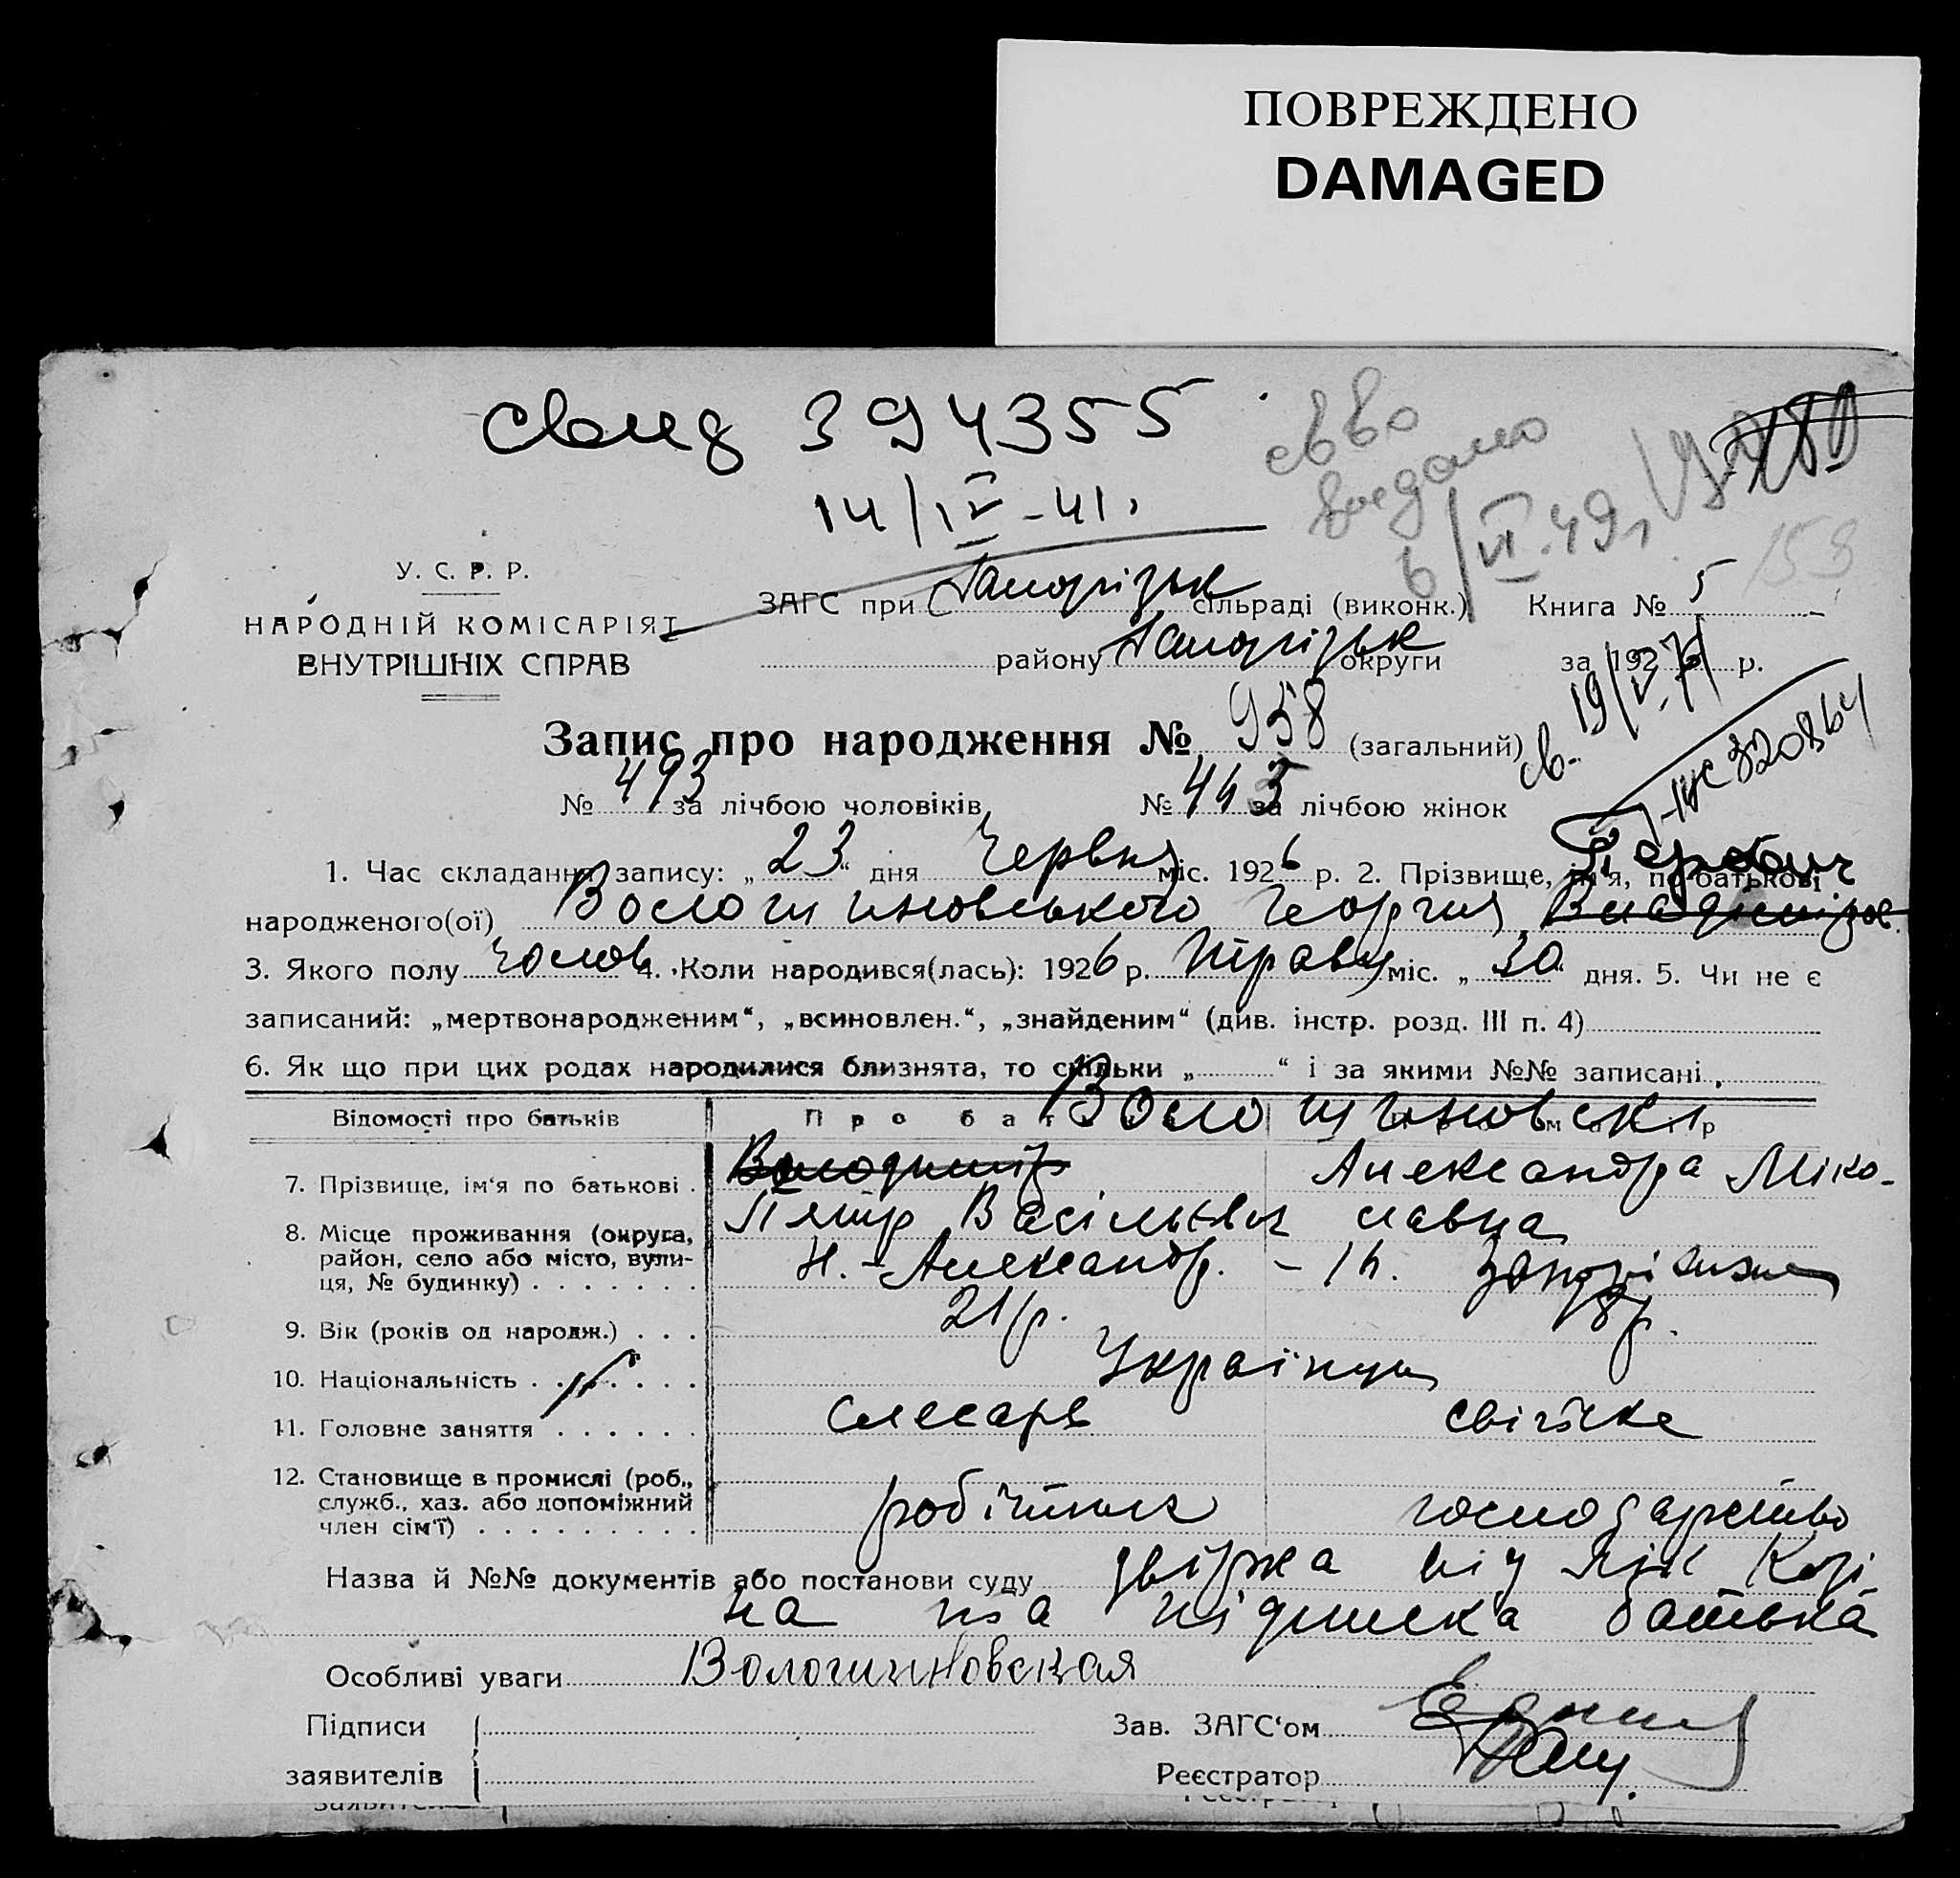 ПОВРЕЖДЕНО
DAMAGED
свид 394355
14/IV-41.
св во
выдано
6/VI.49г.
У. С. Р. Р.
НАРОДНІЙ КОМІСАРІЯТ
ВНУТРІШНІХ СПРАВ
ЗАГС при Запоріжськ сільраді (виконк.) Книга № 5
району Запоріжськ округи за 192 р.
св. 19/V.71
Запис про народження № 958 (загальний)
№ 493 за лічбою чоловіків, № 445 за лічбою жінок
1. Час складання запису: „23“ дня Червня міс. 1926 р. 2. Прізвище, ім'я, по батькові
народженого(ої) Волошиновського Георгия
3. Якого полу Чолов 4. Коли народився(лась): 1926 р. Травня міс. „30“ дня. 5. Чи не є
записаний: „мертвонародженим“, „всиновлен.“, „знайденим“ (див. інстр. розд. III п. 4)
6. Як що при цих родах народилися близнята, то скільки „ “ і за якими №№ записані
Відомості про батьків Про бат Волошиновскі матір
7. Прізвище, ім'я по батькові . Володимір Александра Міко-
Петр Васільевич лавна
8. Місце проживання (округа,
район, село або місто, вули-
ця, № будинку) . . . . . . . Н.-Александр. -
9. Вік (років од народж.) . . . 21 р. 18 р.
10. Національність . . . . . . . Українці
11. Головне заняття . . . . . . слесарь
12. Становище в промислі (роб.,
служб., хаз. або допоміжний
член сім'ї) . . . . . . . . . робітник господарство
Назва й №№ документів або постанови суду
на підписка батька
Особливі уваги Волошиновская
Підписи
заявителів
Зав. ЗАГС'ом
Реєстратор